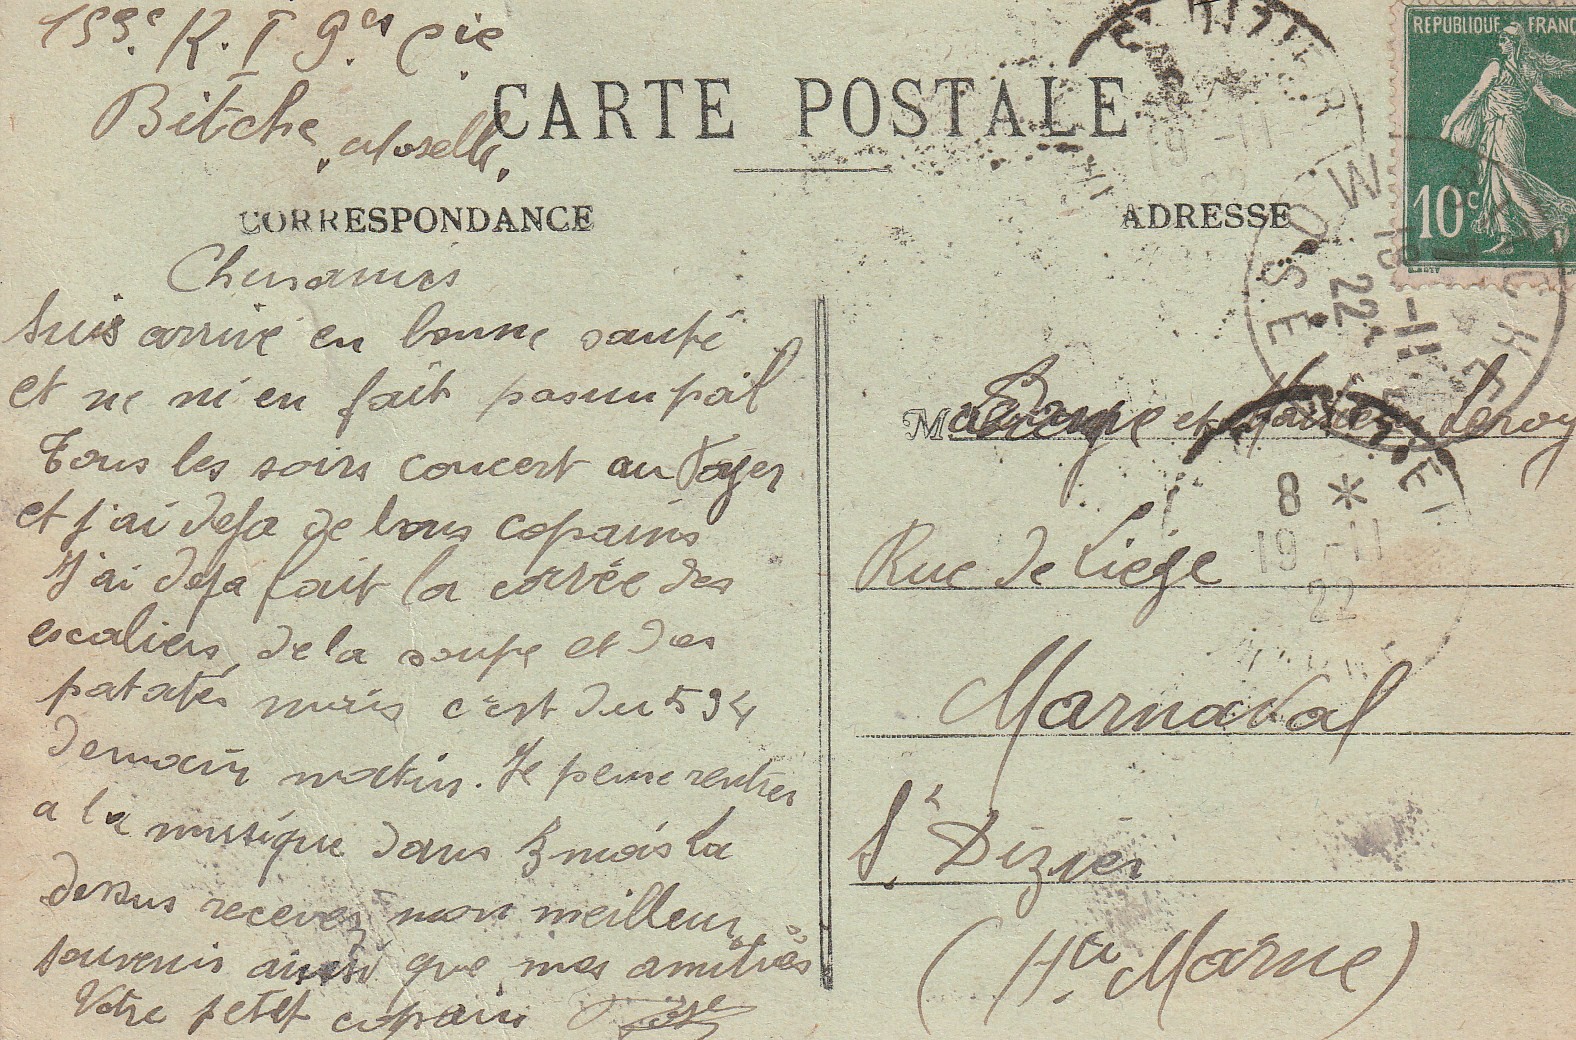 153e R.I 9es Cie
Bitche
Moselle
CARTE POSTALE
CORRESPONDANCE
ADRESSE
REPUBLIQUE FRANÇ
10c
Chers amis
Suis arrivé en bonne santé
et ne m'en fait pas un poil
Tous les soirs concert au Foyer
et j'ai deja de bons copains
J'ai deja fait la corvée des
escaliers, de la soupe et des
patates mais c'est du 594
demain matin. Je pense rentrer
a la musique dans 3 mois La
dessus recevez mon meilleur
souvenir ainsi que mes amitiés
Votre petit copain
M et Leroy
Rue de Liége
Marnaval
St Dizier
(Hte Marne)
19 -11
22
8 *
19 -11
22
MOSELLE
18 -11
22